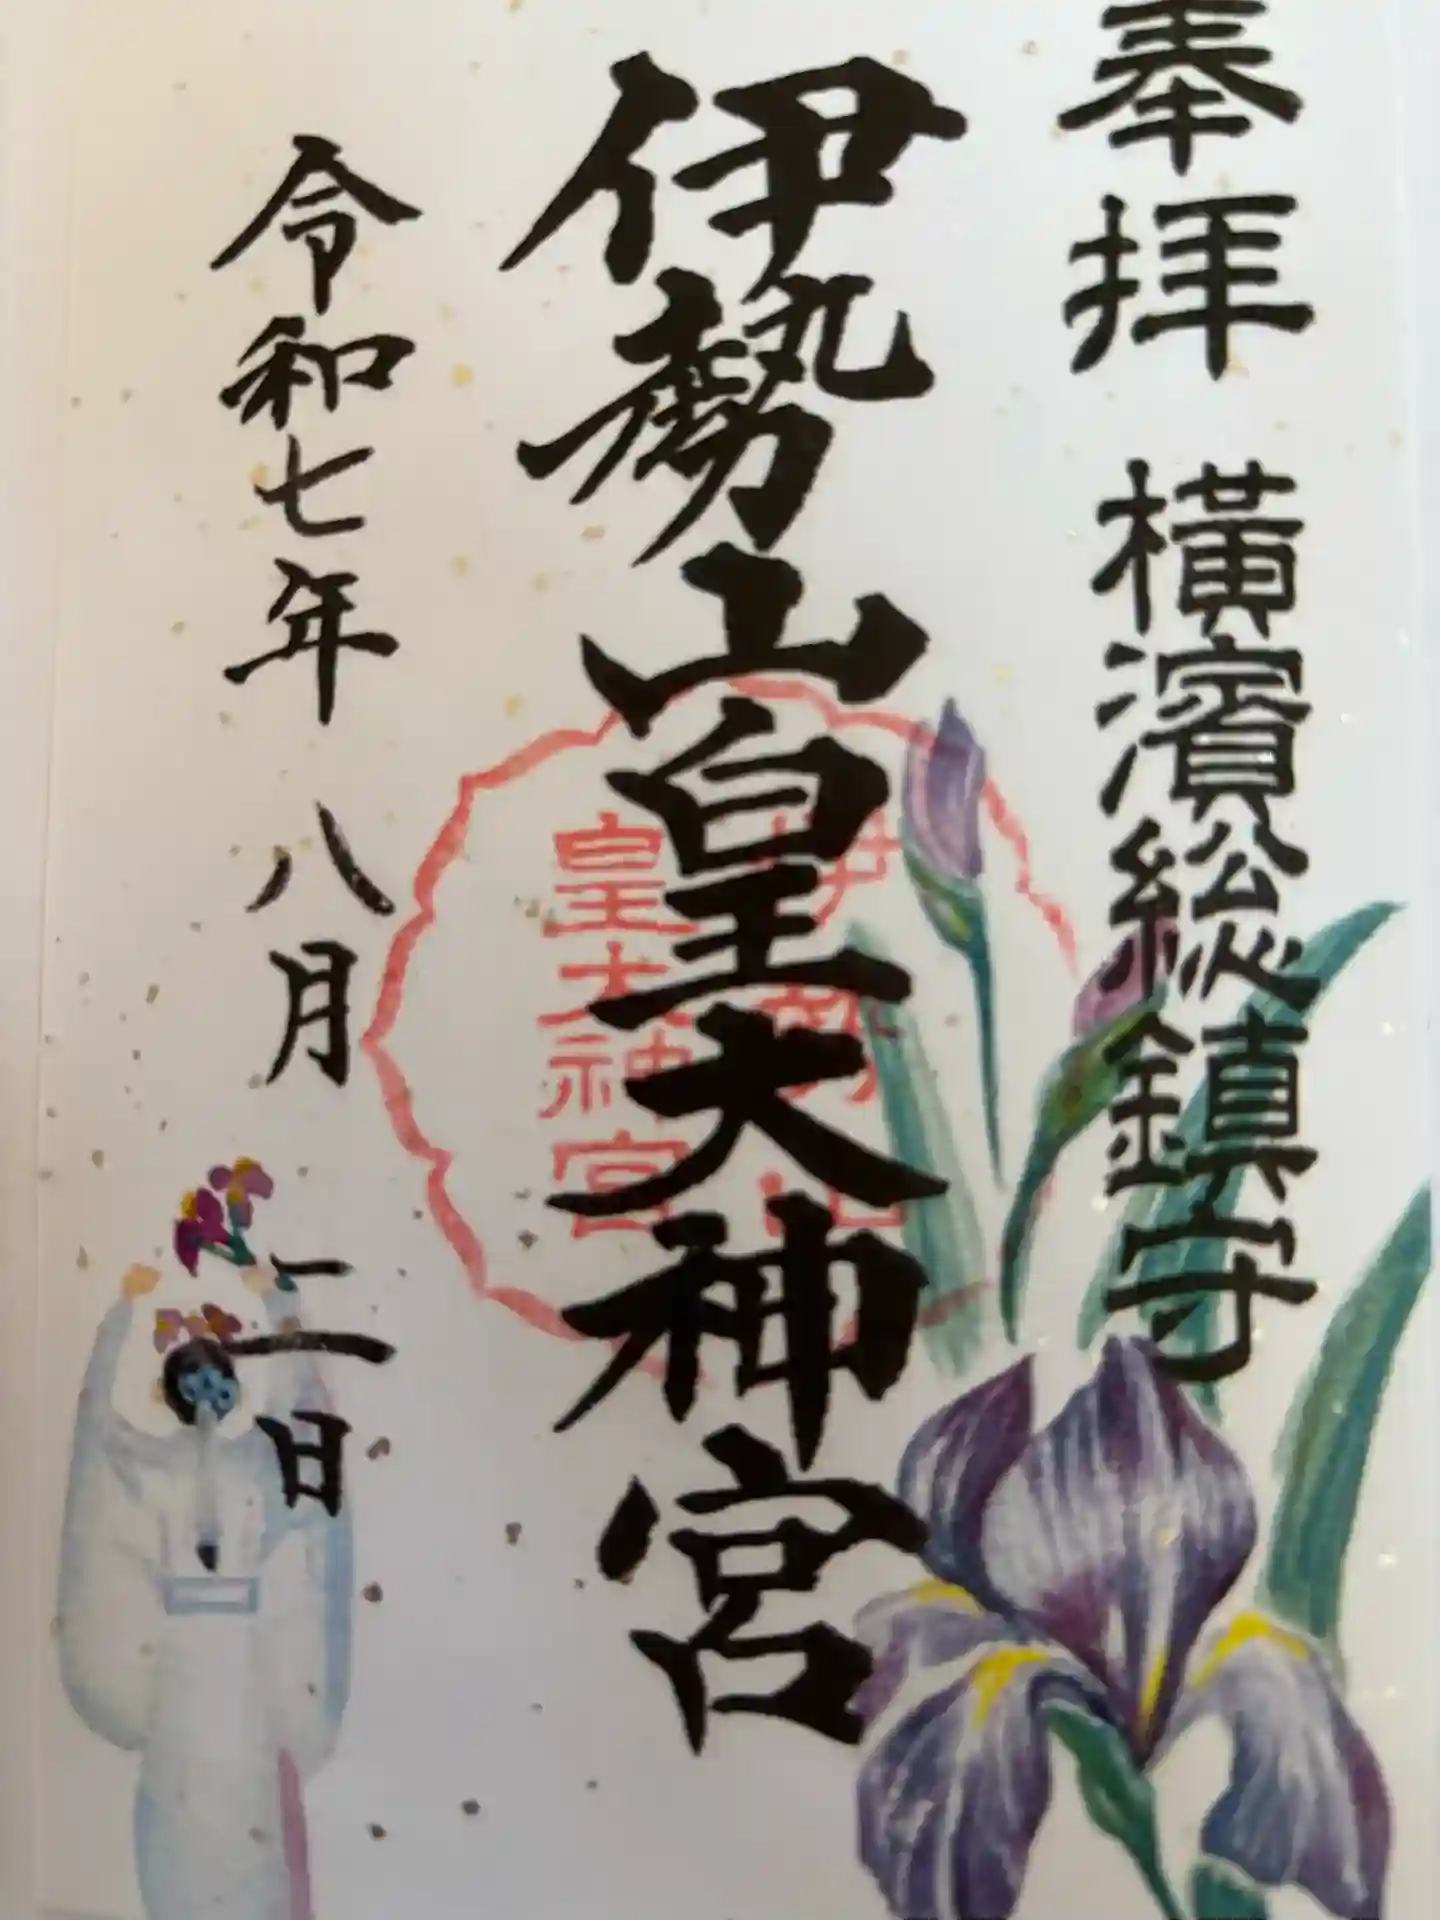 奉拝 横濱総鎮守
伊勢山皇大神宮
伊勢山
皇大神宮
令和七年 八月 二日